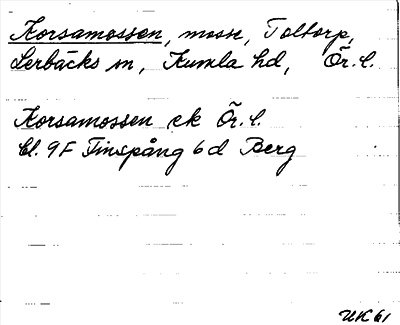 Korsamossen, mosse, Toltorp,
Lerbäcks sn, Kumla hd, Ör. l.
Korsamossen ek Ör. l.
Bl. 9F Finspång 6d Berg
UK 61